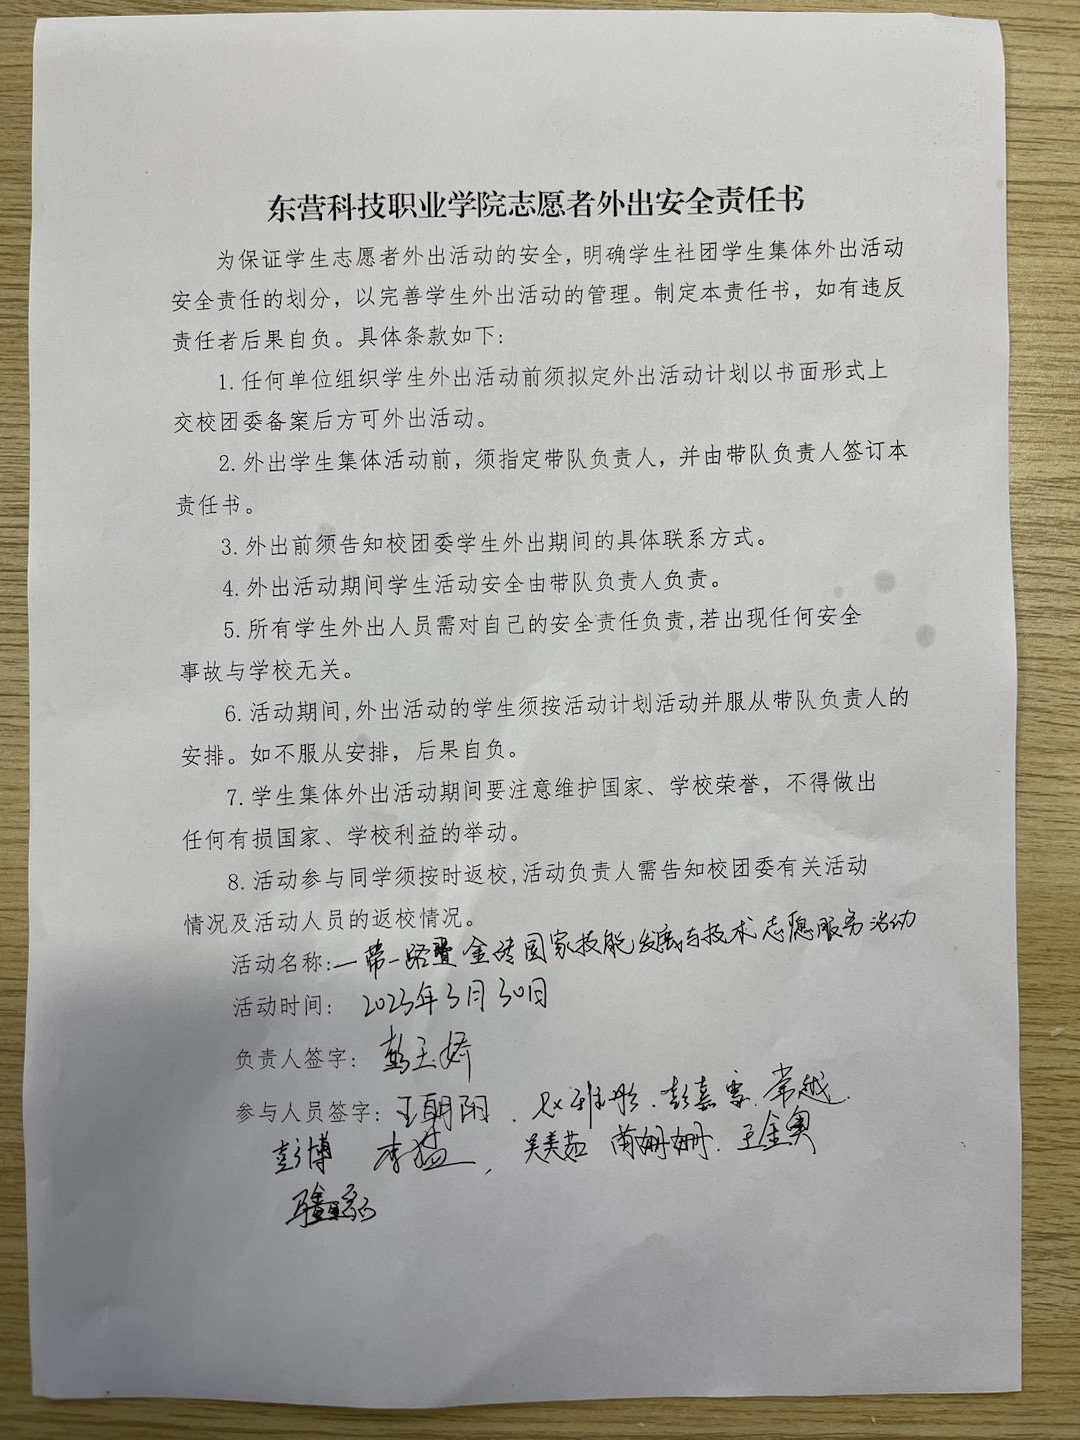 东营科技职业学院志愿者外出安全责任书
为保证学生志愿者外出活动的安全，明确学生社团学生集体外出活动
安全责任的划分，以完善学生外出活动的管理。制定本责任书，如有违反
责任者后果自负。具体条款如下：
1.任何单位组织学生外出活动前须拟定外出活动计划以书面形式上
交校团委备案后方可外出活动。
2.外出学生集体活动前，须指定带队负责人，并由带队负责人签订本
责任书。
3.外出前须告知校团委学生外出期间的具体联系方式。
4.外出活动期间学生活动安全由带队负责人负责。
5.所有学生外出人员需对自己的安全责任负责,若出现任何安全
事故与学校无关。
6.活动期间,外出活动的学生须按活动计划活动并服从带队负责人的
安排。如不服从安排，后果自负。
7.学生集体外出活动期间要注意维护国家、学校荣誉，不得做出
任何有损国家、学校利益的举动。
8.活动参与同学须按时返校,活动负责人需告知校团委有关活动
情况及活动人员的返校情况。
活动名称:一带一路暨金砖国家技能发展与技术志愿服务活动
活动时间: 2023年3月30日
负责人签字: 彭玉娇
参与人员签字: 王朝阳. 赵雅彤. 彭嘉雯. 常越.
彭博 李猛, 吴美茹 蔺姗姗.